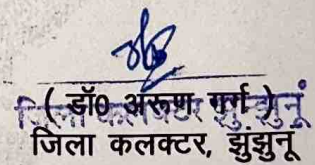 ( डॉ0 अरूण गर्ग )
जिला कलक्टर, झुंझुनू
जिला कलक्टर झुन्झुनूं